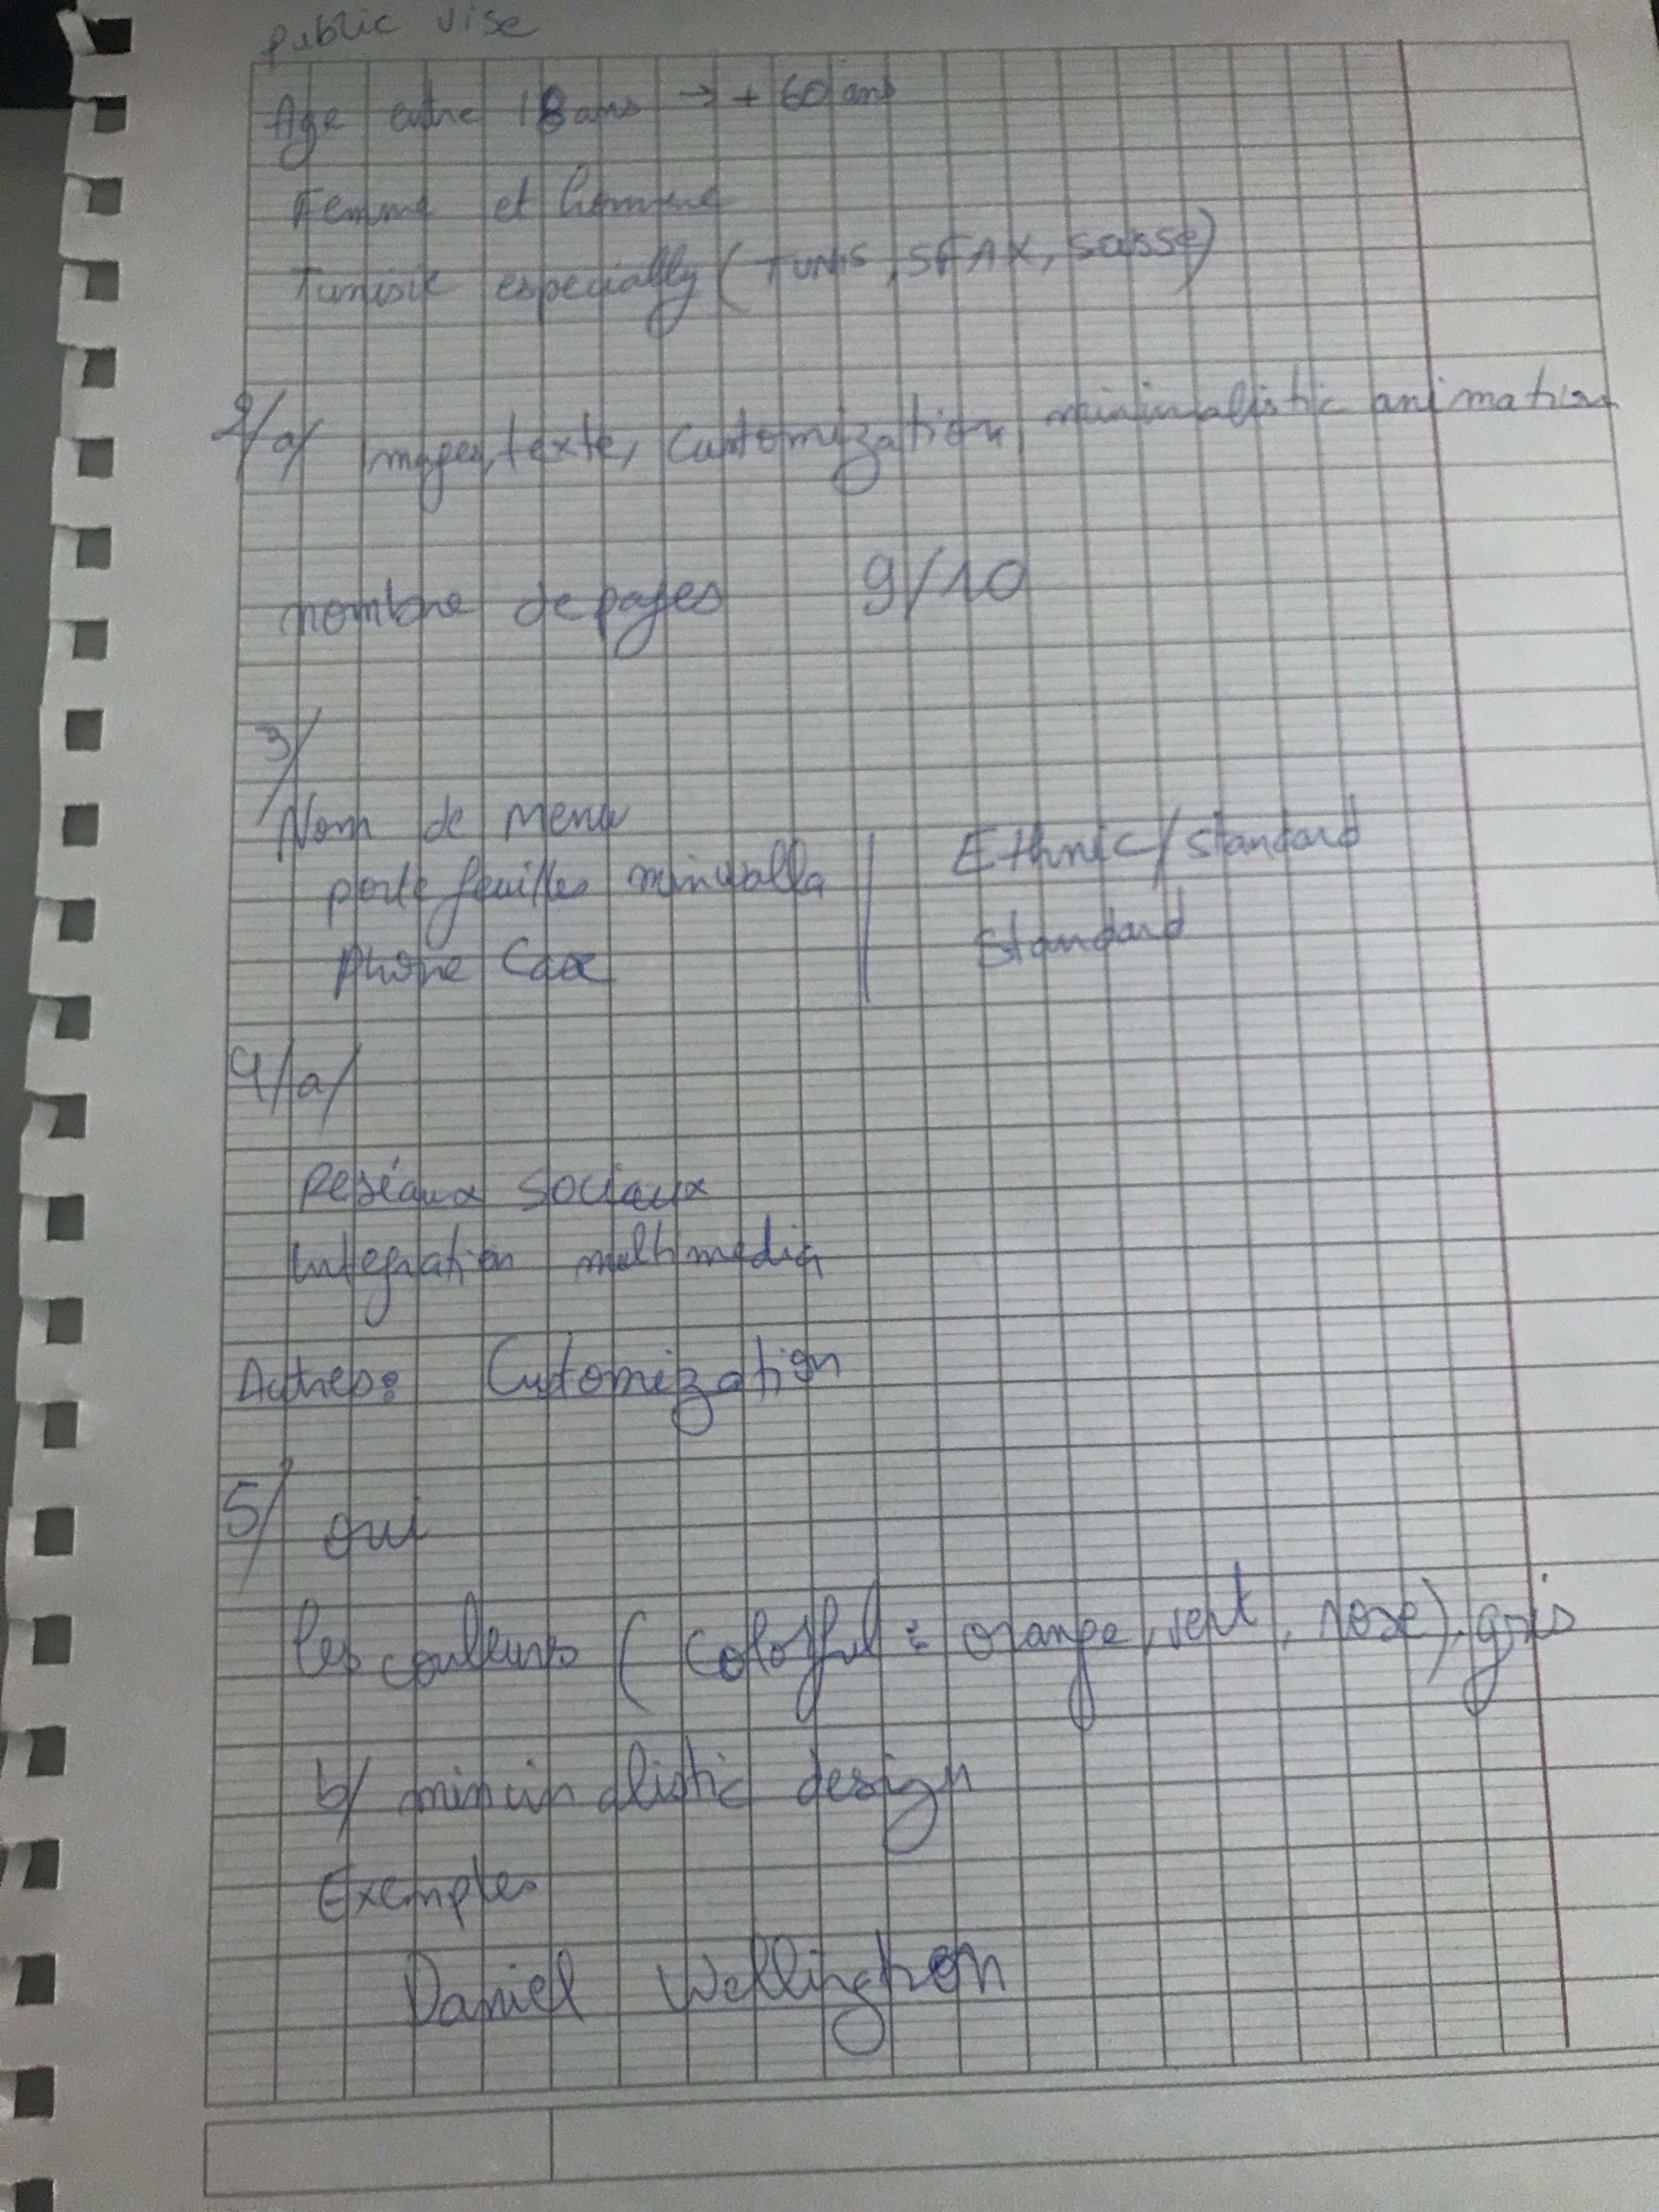 public vise
Age entre 18 ans → + 60 ans
Femme et homme
Tunisie especially (TUNIS, SFAX, sousse)
2/a/ Images, texte, Customization, minimalistic animation
nombre de pages 9/10
3/
Nom de menu
porte feuilles miniwalla | Ethnic/standard
phone Case | Standard
4/a/
Reséaux sociaux
Integration multimedia
Autres: Cutomization
5/ oui
les couleurs (Colorful : orange, vert, rose), gris
b/ minimalistic design
Exemples
Daniel Wellington